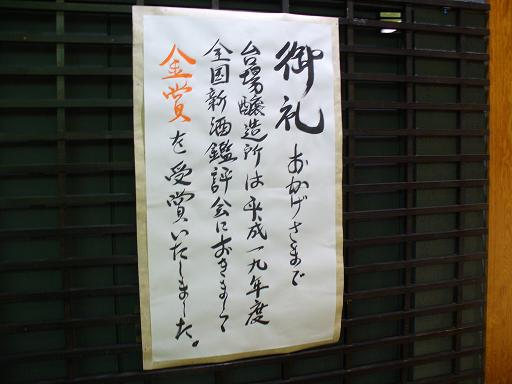 御礼 おかげさまで
台場醸造所は平成一九年度
全国新酒鑑評会におきまして
金賞を受賞いたしました。